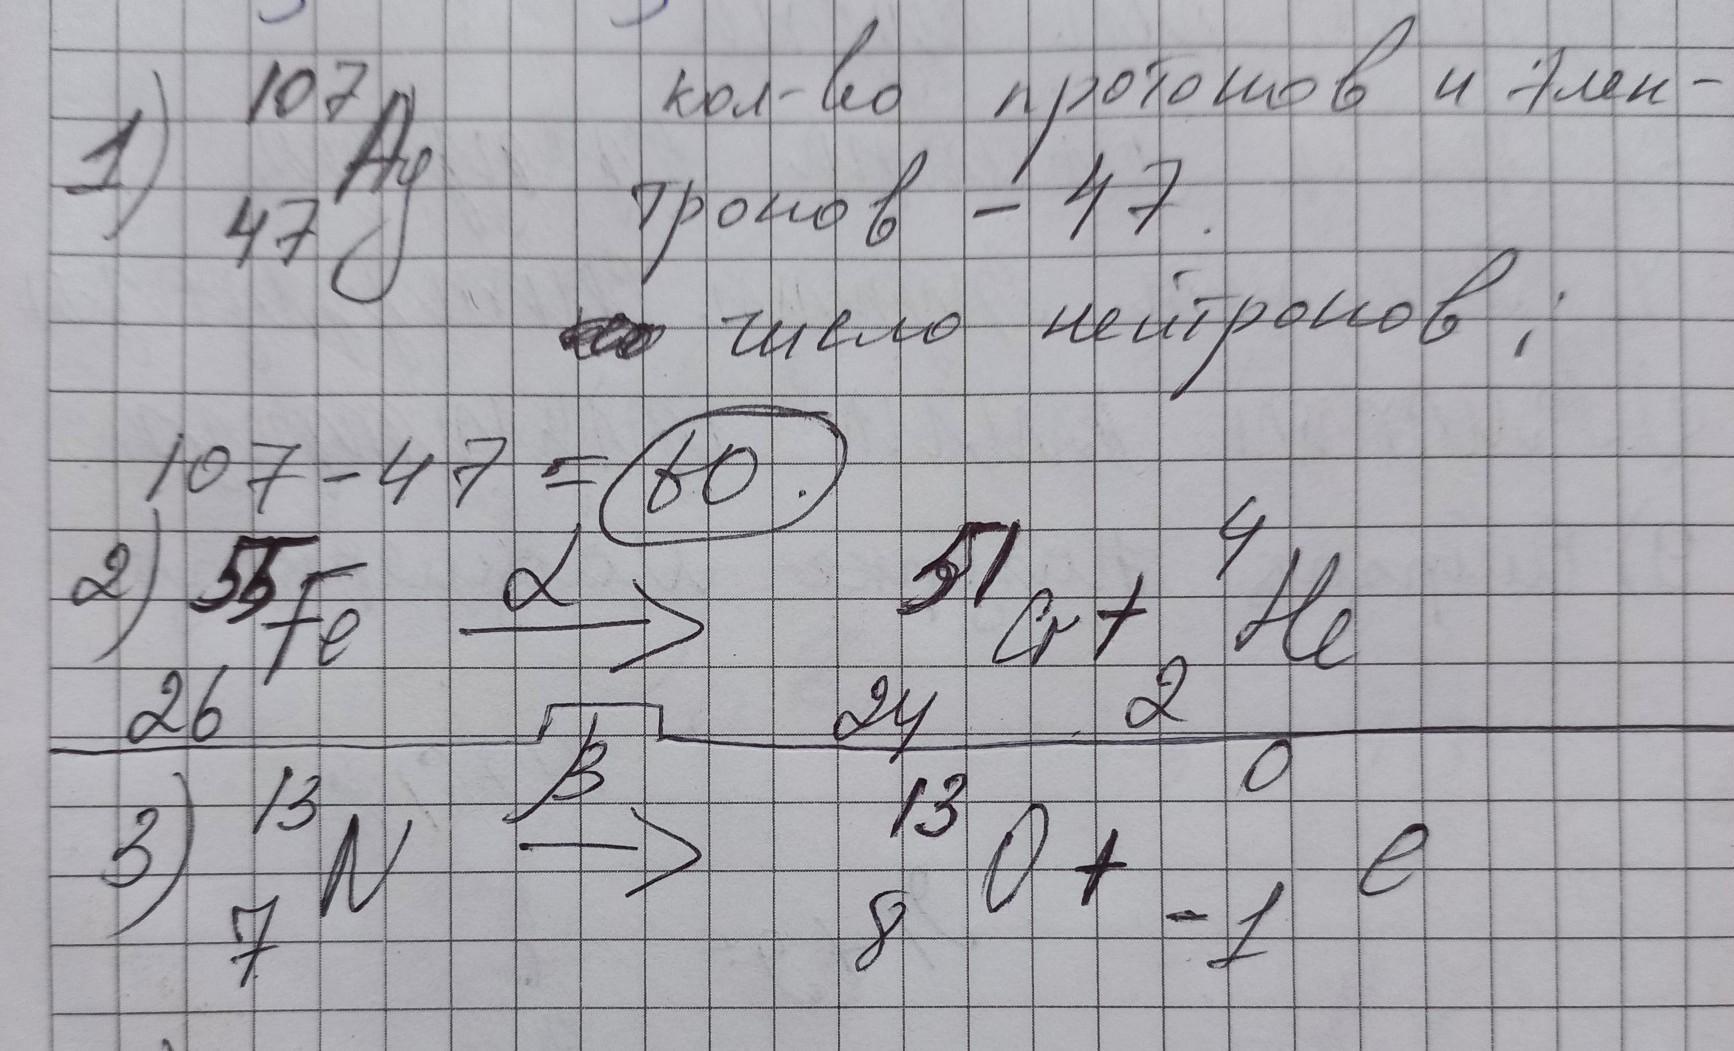 1) ¹⁰⁷₄₇Ag кол-во протонов и элек-
тронов – 47.
число нейтронов:
107 – 47 = 60.
2) ⁵⁵₂₆Fe α→ ⁵¹₂₄Cr + ⁴₂He
3) ¹³₇N β→ ¹³₈O + ⁰₋₁e